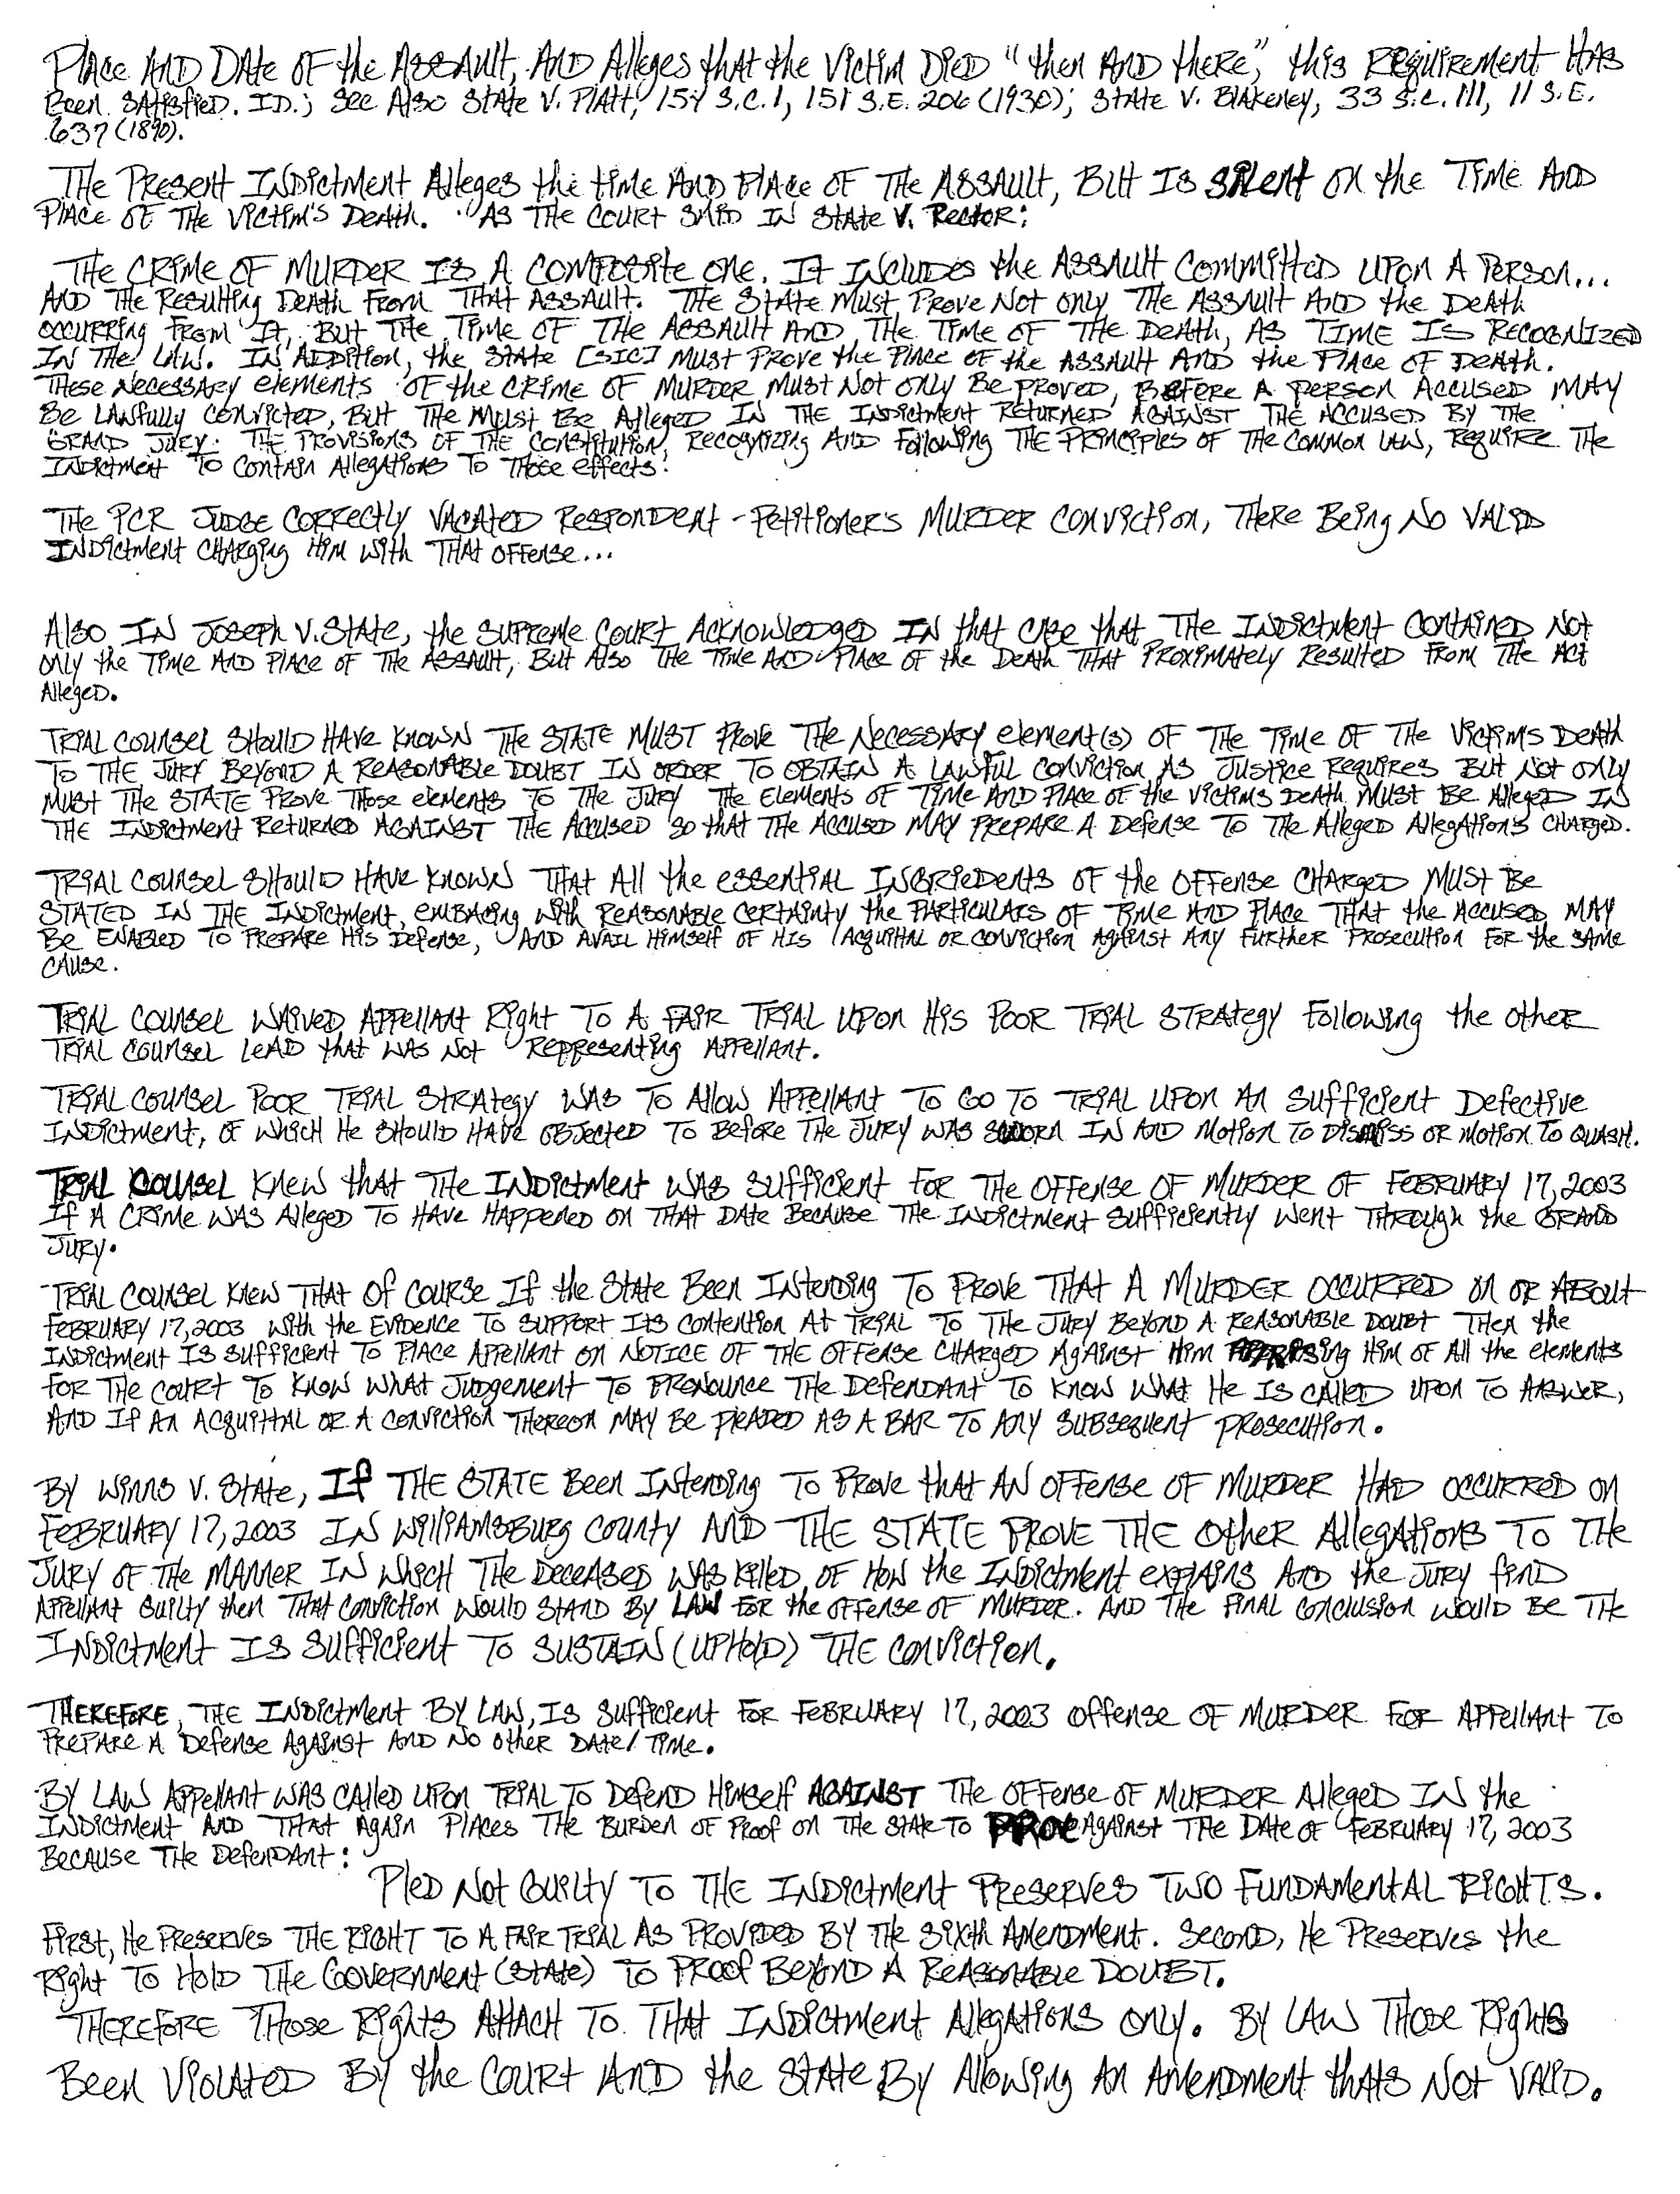 Place and date of the assault, and alleges that the victim died "then and there," this requirement has
been satisfied. ID.; see also State v. Platt, 154 S.C. 1, 151 S.E. 206 (1930); State v. Blakeney, 33 S.C. 111, 11 S.E.
637 (1890).
The present indictment alleges the time and place of the assault, but is silent on the time and
place of the victim's death. "As the court said in State v. Rector:
The crime of murder is a composite one. It includes the assault committed upon a person...
and the resulting death from that assault. The state must prove not only the assault and the death
occurring from it, but the time of the assault and the time of the death, as time is recognized
in the law. In addition, the state [sic] must prove the place of the assault and the place of death.
These necessary elements of the crime of murder must not only be proved, before a person accused may
be lawfully convicted, but the must be alleged in the indictment returned against the accused by the
grand jury. The provisions of the constitution, recognizing and following the principles of the common law, require the
indictment to contain allegations to those effects.
The PCR judge correctly vacated respondent-petitioner's murder conviction, there being no valid
indictment charging him with that offense...
Also in Joseph v. State, the supreme court acknowledged in that case that the indictment contained not
only the time and place of the assault, but also the time and place of the death that proximately resulted from the act
alleged.
Trial counsel should have known the state must prove the necessary element(s) of the time of the victims death
to the jury beyond a reasonable doubt in order to obtain a lawful conviction as justice requires but not only
must the state prove those elements to the jury the elements of time and place of the victims death must be alleged in
the indictment returned against the accused so that the accused may prepare a defense to the alleged allegations charged.
Trial counsel should have known that all the essential ingriedents of the offense charged must be
stated in the indictment, embacing with reasonable certainty the particulars of time and place that the accused may
be enabled to prepare his defense, and avail himself of his acquittal or conviction against any further prosecution for the same
cause.
Trial counsel waived appellant right to a fair trial upon his poor trial strategy following the other
trial counsel lead that was not representing appellant.
Trial counsel poor trial strategy was to allow appellant to go to trial upon an sufficient defective
indictment, of which he should have objected to before the jury was sworn in and motion to dismiss or motion to quash.
Trial counsel knew that the indictment was sufficient for the offense of murder of February 17, 2003
if a crime was alleged to have happened on that date because the indictment sufficiently went through the grand
jury.
Trial counsel knew that of course if the state been intending to prove that a murder occurred on or about
February 17, 2003 with the evidence to support its contention at trial to the jury beyond a reasonable doubt then the
indictment is sufficient to place appellant on notice of the offense charged against him apprising him of all the elements
for the court to know what judgement to pronounce the defendant to know what he is called upon to answer,
and if an acquittal or a conviction thereon may be pleaded as a bar to any subsequent prosecution.
By Winns v. State, if the state been intending to prove that an offense of murder had occurred on
February 17, 2003 in Williamsburg County and the state prove the other allegations to the
jury of the manner in which the deceased was killed of how the indictment explains and the jury find
appellant guilty then that conviction would stand by law for the offense of murder. And the final conclusion would be the
indictment is sufficient to sustain (uphold) the conviction.
Therefore, the indictment by law, is sufficient for February 17, 2003 offense of murder for appellant to
prepare a defense against and no other date/time.
By law appellant was called upon trial to defend himself against the offense of murder alleged in the
indictment and that again places the burden of proof on the state to prove against the date of February 17, 2003
because the defendant:
Pled not guilty to the indictment preserves two fundamental rights.
First, he preserves the right to a fair trial as provided by the Sixth Amendment. Second, he preserves the
right to hold the government (state) to proof beyond a reasonable doubt.
Therefore those rights attach to that indictment allegations only. By law those rights
been violated by the court and the state by allowing an amendment thats not valid.